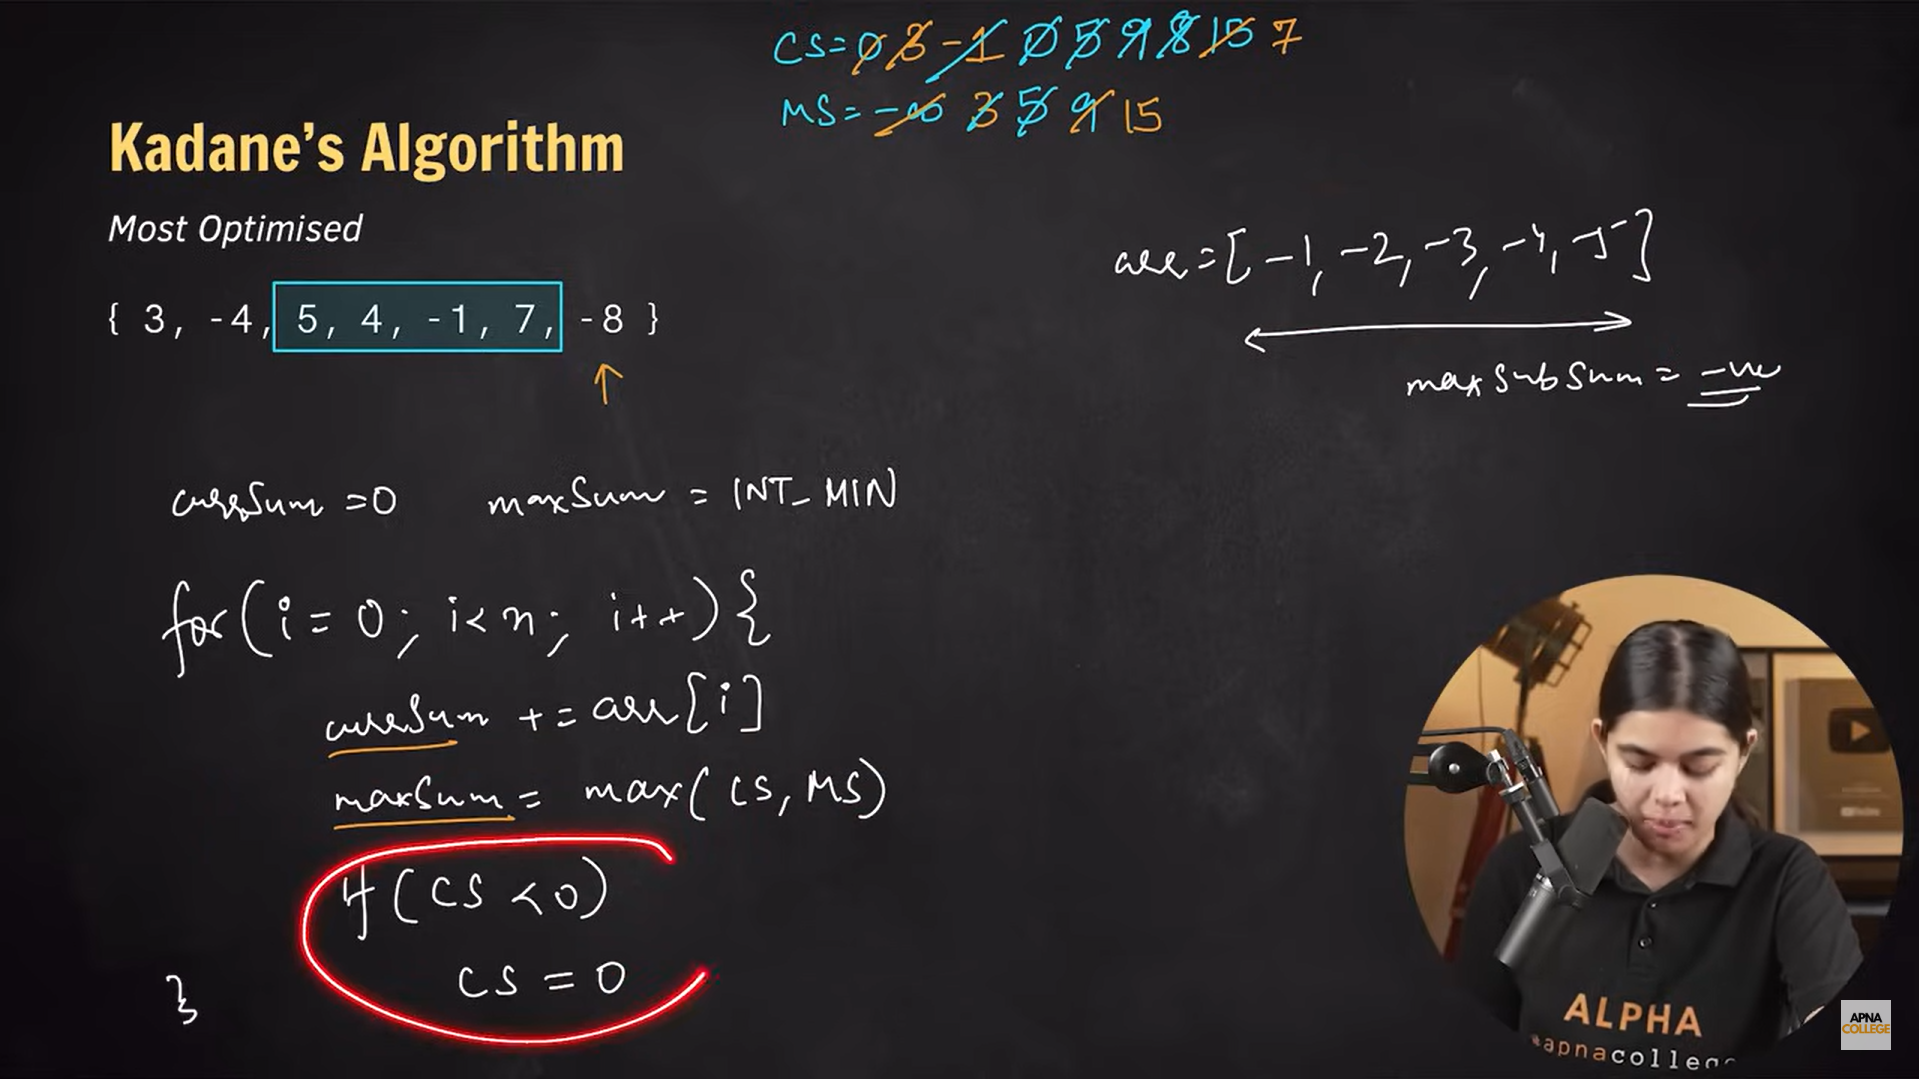 CS=0 3 -1 0 5 9 8 15 7
MS=-∞ 3 5 9 15
Kadane's Algorithm
Most Optimised
{ 3, -4, 5, 4, -1, 7, -8 }
arr=[-1, -2, -3, -4, -5]
maxSubSum = -ve
currSum =0 maxSum = INT_MIN
for(i=0; i<n; i++){
currSum += arr[i]
maxSum= max(CS, MS)
if(CS <0)
CS = 0
}
ALPHA
APNA
COLLEGE